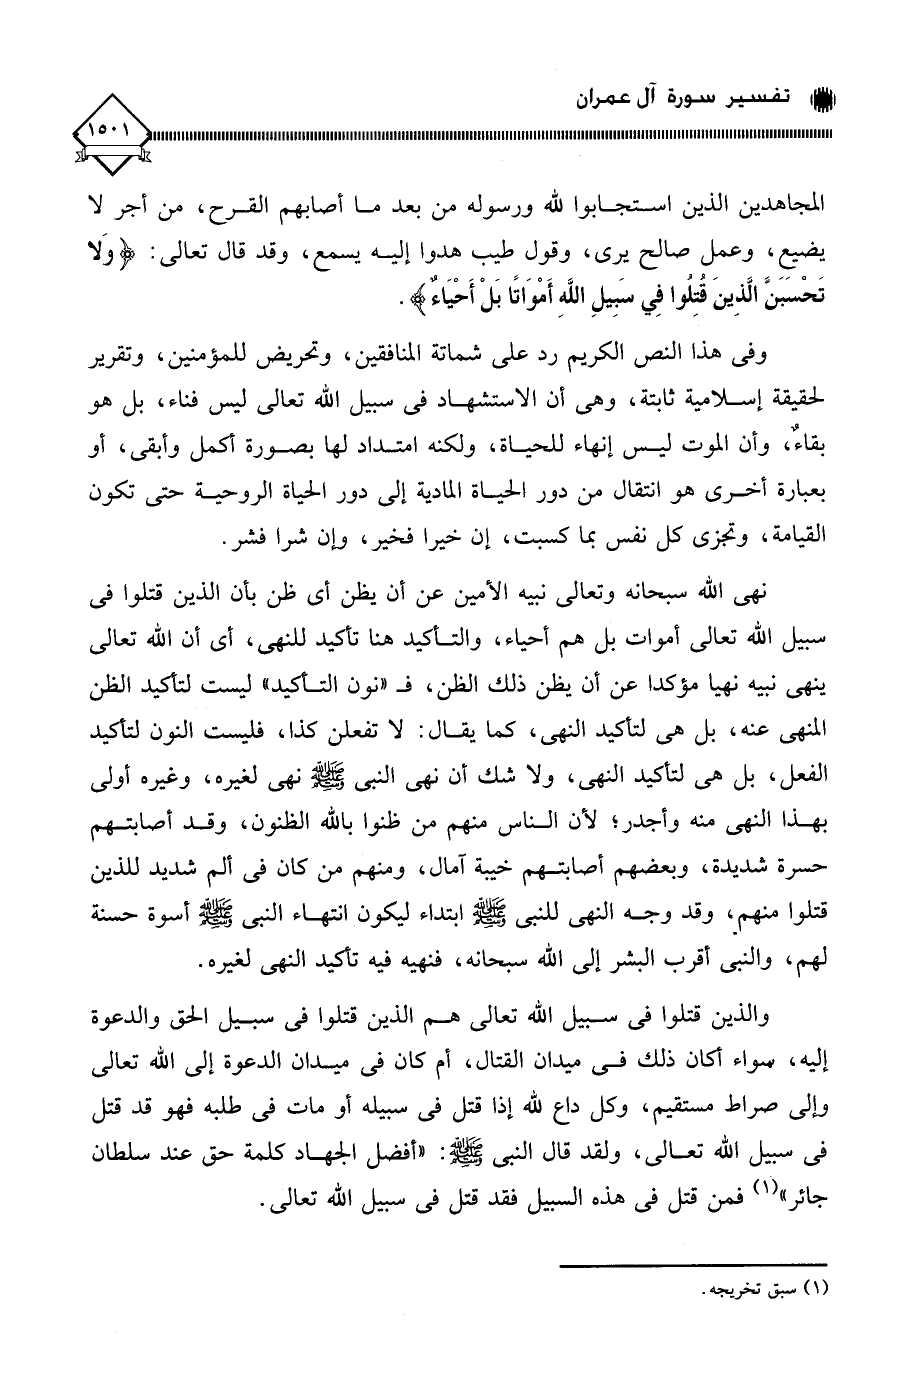 تفسير سورة آل عمران
١٥٠١
المجاهدين الذين استجابوا لله ورسوله من بعد ما أصابهم القرح، من أجر لا
يضيع، وعمل صالح يرى، وقول طيب هدوا إليه يسمع، وقد قال تعالى: ﴿وَلَا
تَحْسَبَنَّ الَّذِينَ قُتِلُوا فِي سَبِيلِ اللَّهِ أَمْوَاتًا بَلْ أَحْيَاءٌ﴾.
وفى هذا النص الكريم رد على شماتة المنافقين، وتحريض للمؤمنين، وتقرير
لحقيقة إسلامية ثابتة، وهى أن الاستشهاد فى سبيل الله تعالى ليس فناء، بل هو
بقاءٌ، وأن الموت ليس إنهاء للحياة، ولكنه امتداد لها بصورة أكمل وأبقى، أو
بعبارة أخرى هو انتقال من دور الحياة المادية إلى دور الحياة الروحية حتى تكون
القيامة، وتجزى كل نفس بما كسبت، إن خيرا فخير، وإن شرا فشر.
نهى الله سبحانه وتعالى نبيه الأمين عن أن يظن أى ظن بأن الذين قتلوا فى
سبيل الله تعالى أموات بل هم أحياء، والتأكيد هنا تأكيد للنهى، أى أن الله تعالى
ينهى نبيه نهيا مؤكدا عن أن يظن ذلك الظن، فـ «نون التأكيد» ليست لتأكيد الظن
المنهى عنه، بل هى لتأكيد النهى، كما يقال: لا تفعلن كذا، فليست النون لتأكيد
الفعل، بل هى لتأكيد النهى، ولا شك أن نهى النبى ﷺ نهى لغيره، وغيره أولى
بهذا النهى منه وأجدر؛ لأن الناس منهم من ظنوا بالله الظنون، وقد أصابتهم
حسرة شديدة، وبعضهم أصابتهم خيبة آمال، ومنهم من كان فى ألم شديد للذين
قتلوا منهم، وقد وجه النهى للنبى ﷺ ابتداء ليكون انتهاء النبى ﷺ أسوة حسنة
لهم، والنبى أقرب البشر إلى الله سبحانه، فنهيه فيه تأكيد النهى لغيره.
والذين قتلوا فى سبيل الله تعالى هم الذين قتلوا فى سبيل الحق والدعوة
إليه، سواء أكان ذلك فى ميدان القتال، أم كان فى ميدان الدعوة إلى الله تعالى
وإلى صراط مستقيم، وكل داع لله إذا قتل فى سبيله أو مات فى طلبه فهو قد قتل
فى سبيل الله تعالى، ولقد قال النبى ﷺ: «أفضل الجهاد كلمة حق عند سلطان
جائر»(١) فمن قتل فى هذه السبيل فقد قتل فى سبيل الله تعالى.
(١) سبق تخريجه.